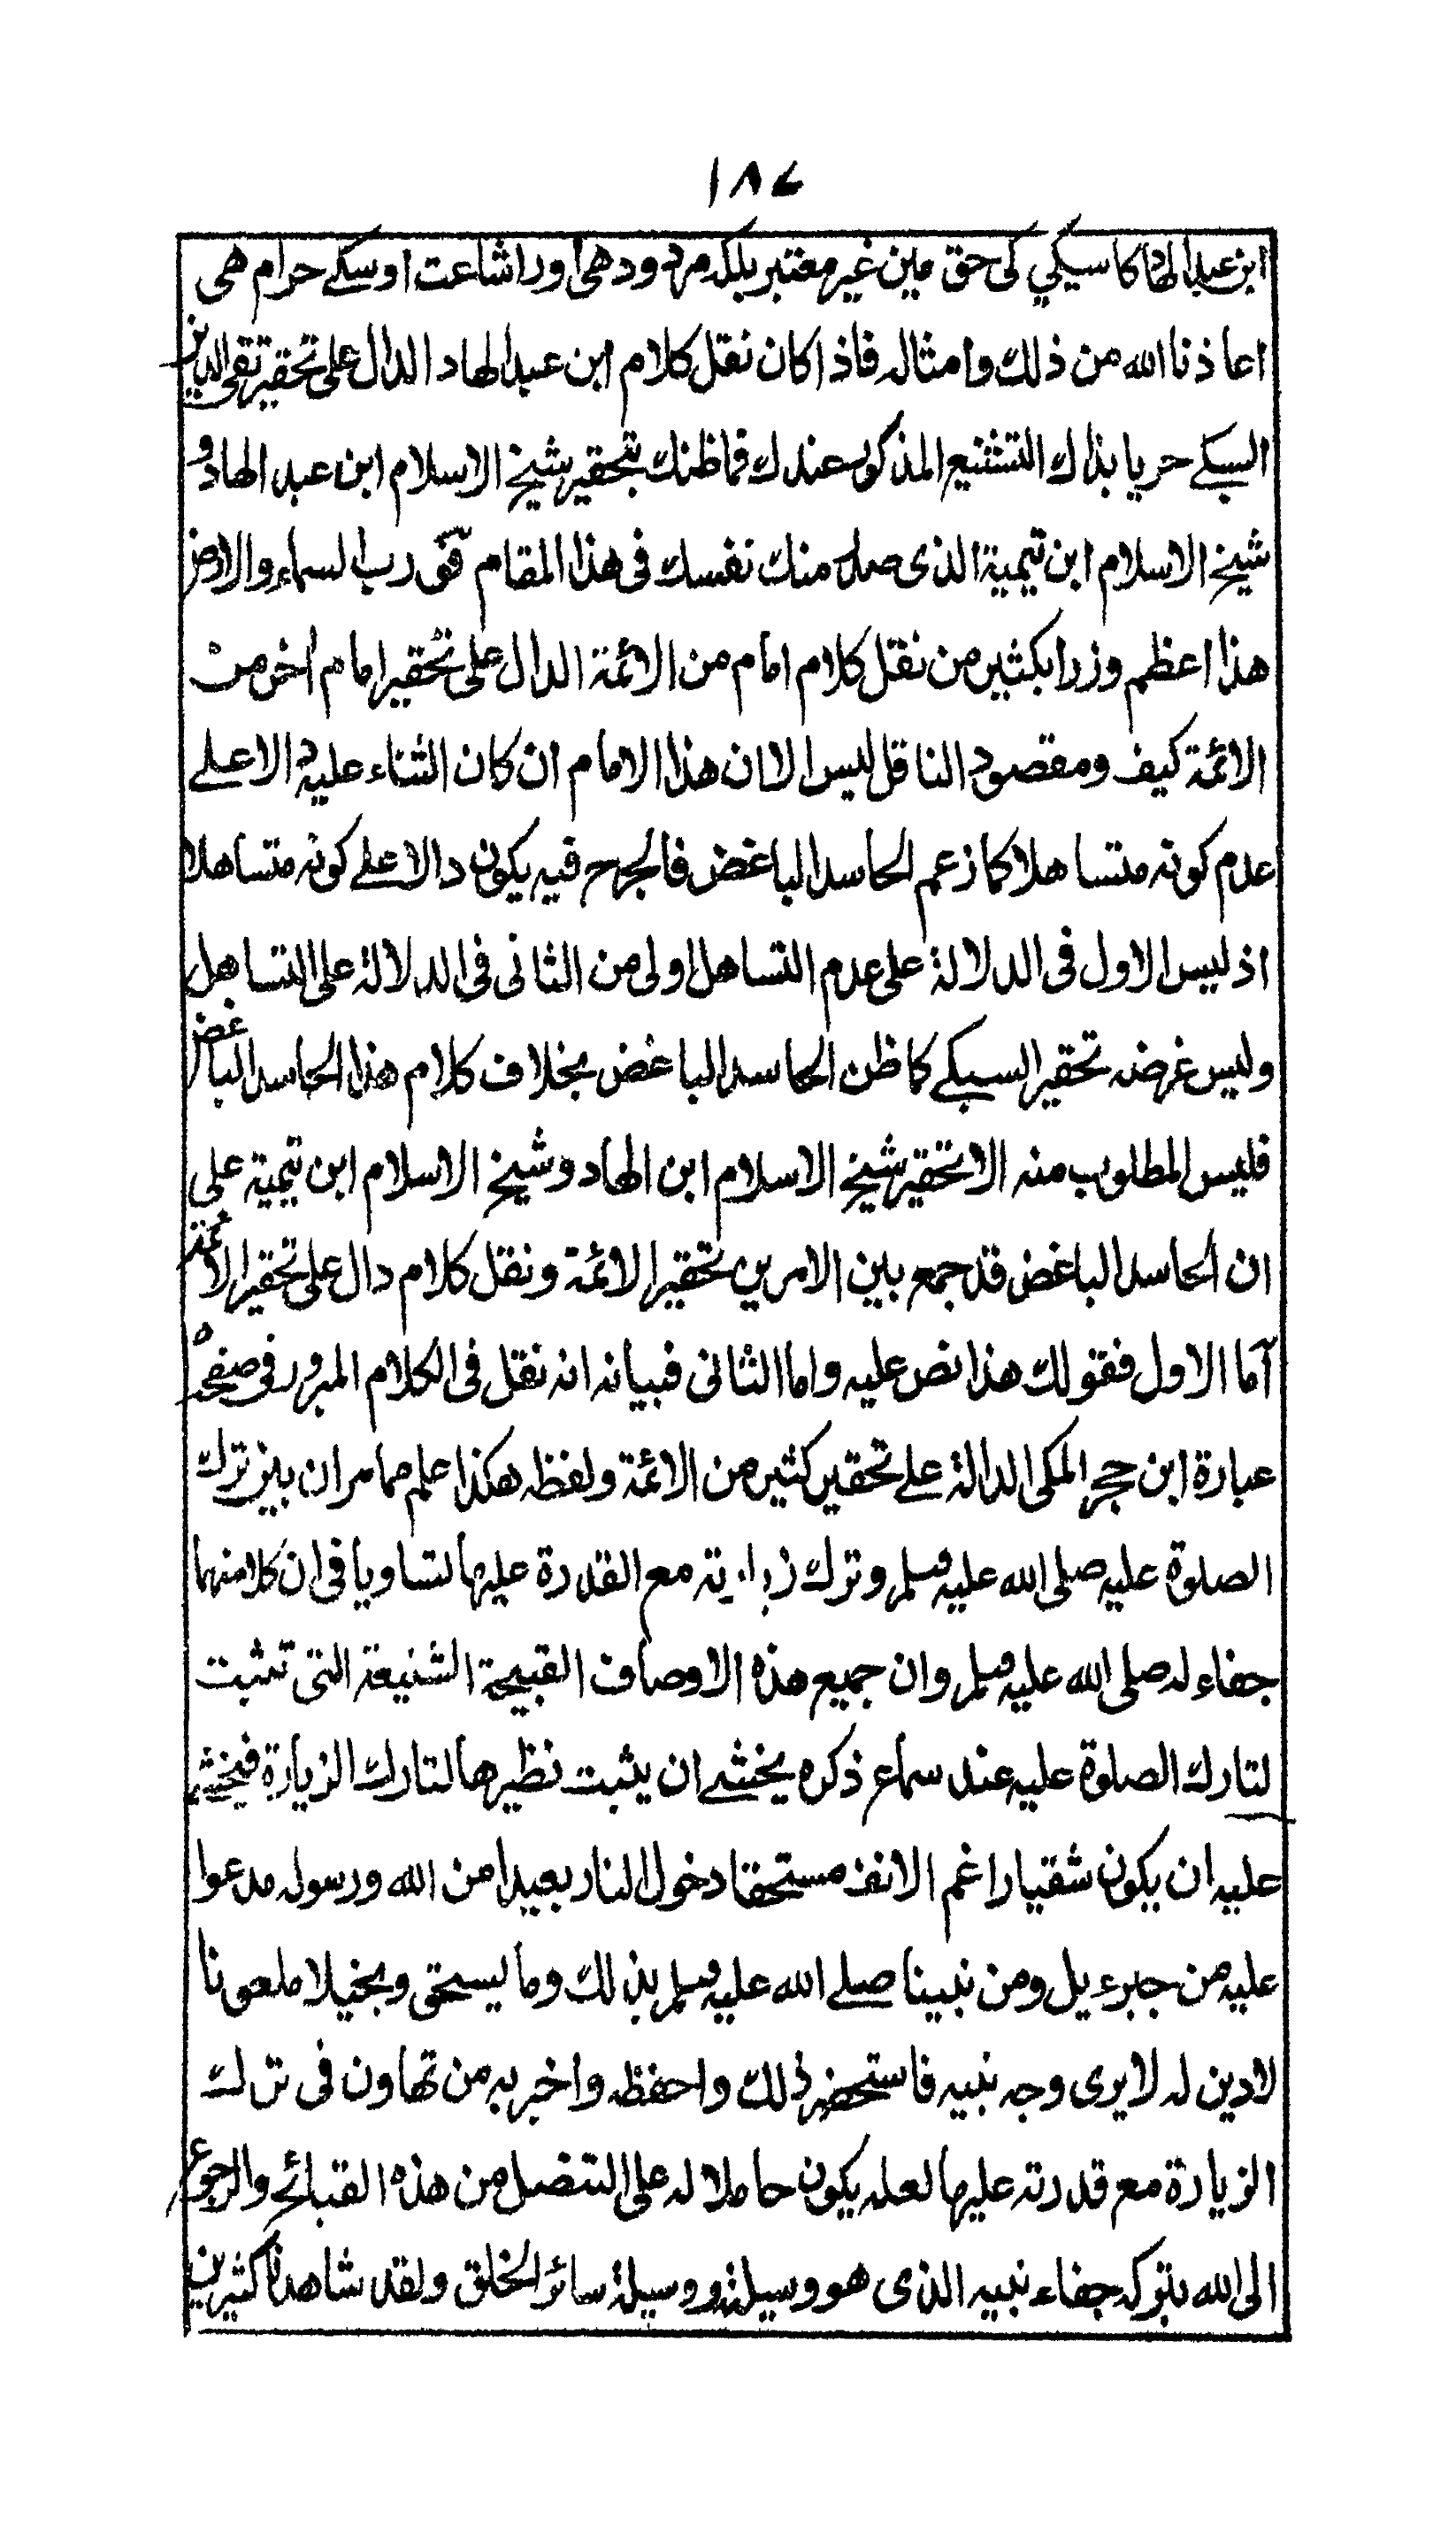 ١٨٧
ابن عبد الهاد کا سبکي کی حق مین غیر معتبر بلکہ مردود هی اور اشاعت اوسکے حرام هی
اعاذنا الله من ذلك وامثاله فاذا كان نقل كلام ابن عبد الهاد الدال على تحقير تقي الدين
السبكے حريا بذاك التشنيع المذكور عندك فما ظنك بتحقير شيخ الاسلام ابن عبد الهاد و
شيخ الاسلام ابن تيمية الذى صدر منك نفسك فى هذا المقام فو رب السماء والارض
هذا اعظم وزرا بكثير من نقل كلام امام من الائمة الدال على تحقير امام اخر من
الائمة كيف ومقصود الناقل ليس الا ان هذا الامام ان كان الثناء عليه دالا علے
عدم كونه متساهلا كما زعم الحاسد الباغض فالجرح فيه يكون دالا علے كونه متساهلا
اذ ليس الاول فى الدلالة على عدم التساهل اولى من الثانى فى الدلالة على التساهل
وليس غرضه تحقير السبكے كما ظن الحاسد الباغض بخلاف كلام هذا الحاسد الباغض
فليس المطلوب منه الا تحقير شيخ الاسلام ابن الهاد وشيخ الاسلام ابن تيمية علي
ان الحاسد الباغض قد جمع بين الامرين تحقير الائمة ونقل كلام دال على تحقير الائمة
آما الاول فقولك هذا نص عليه واما الثانى فبيانه انه نقل فى الكلام المبرور فى صفحه
عبارة ابن حجر المكى الدالة علے تحقير كثير من الائمة ولفظه هكذا علم مما مر ان بين ترك
الصلوة عليه صلى الله عليه وسلم وترك زيارته مع القدرة عليها لتساويا فى ان كلا منهما
جفاء له صلى الله عليه وسلم وان جميع هذه الاوصاف القبيحة الشنيعة التى تثبت
لتارك الصلوة عليه عند سماع ذكره يخشے ان يثبت نظيرها لتارك الزيارة فيخشے
عليه ان يكون شقيا راغم الانف مستحقا دخول النار بعيدا من الله ورسوله مدعوا
عليه من جبرءيل ومن نبينا صلے الله عليه وسلم بذلك وما يسحق وبخيلا ملعونا
لا دين له لا يرى وجه نبيه فاستحضر ذلك واحفظه واخبر به من تهاون فى ترك
الزيارة مع قدرته عليها لعله يكون حاملا له على التنصل من هذه القبائح والرجوع
الى الله بتركه جفاء نبيه الذى هو وسيلته ووسيلة سائر الخلق ولقد شاهدنا كثيرين